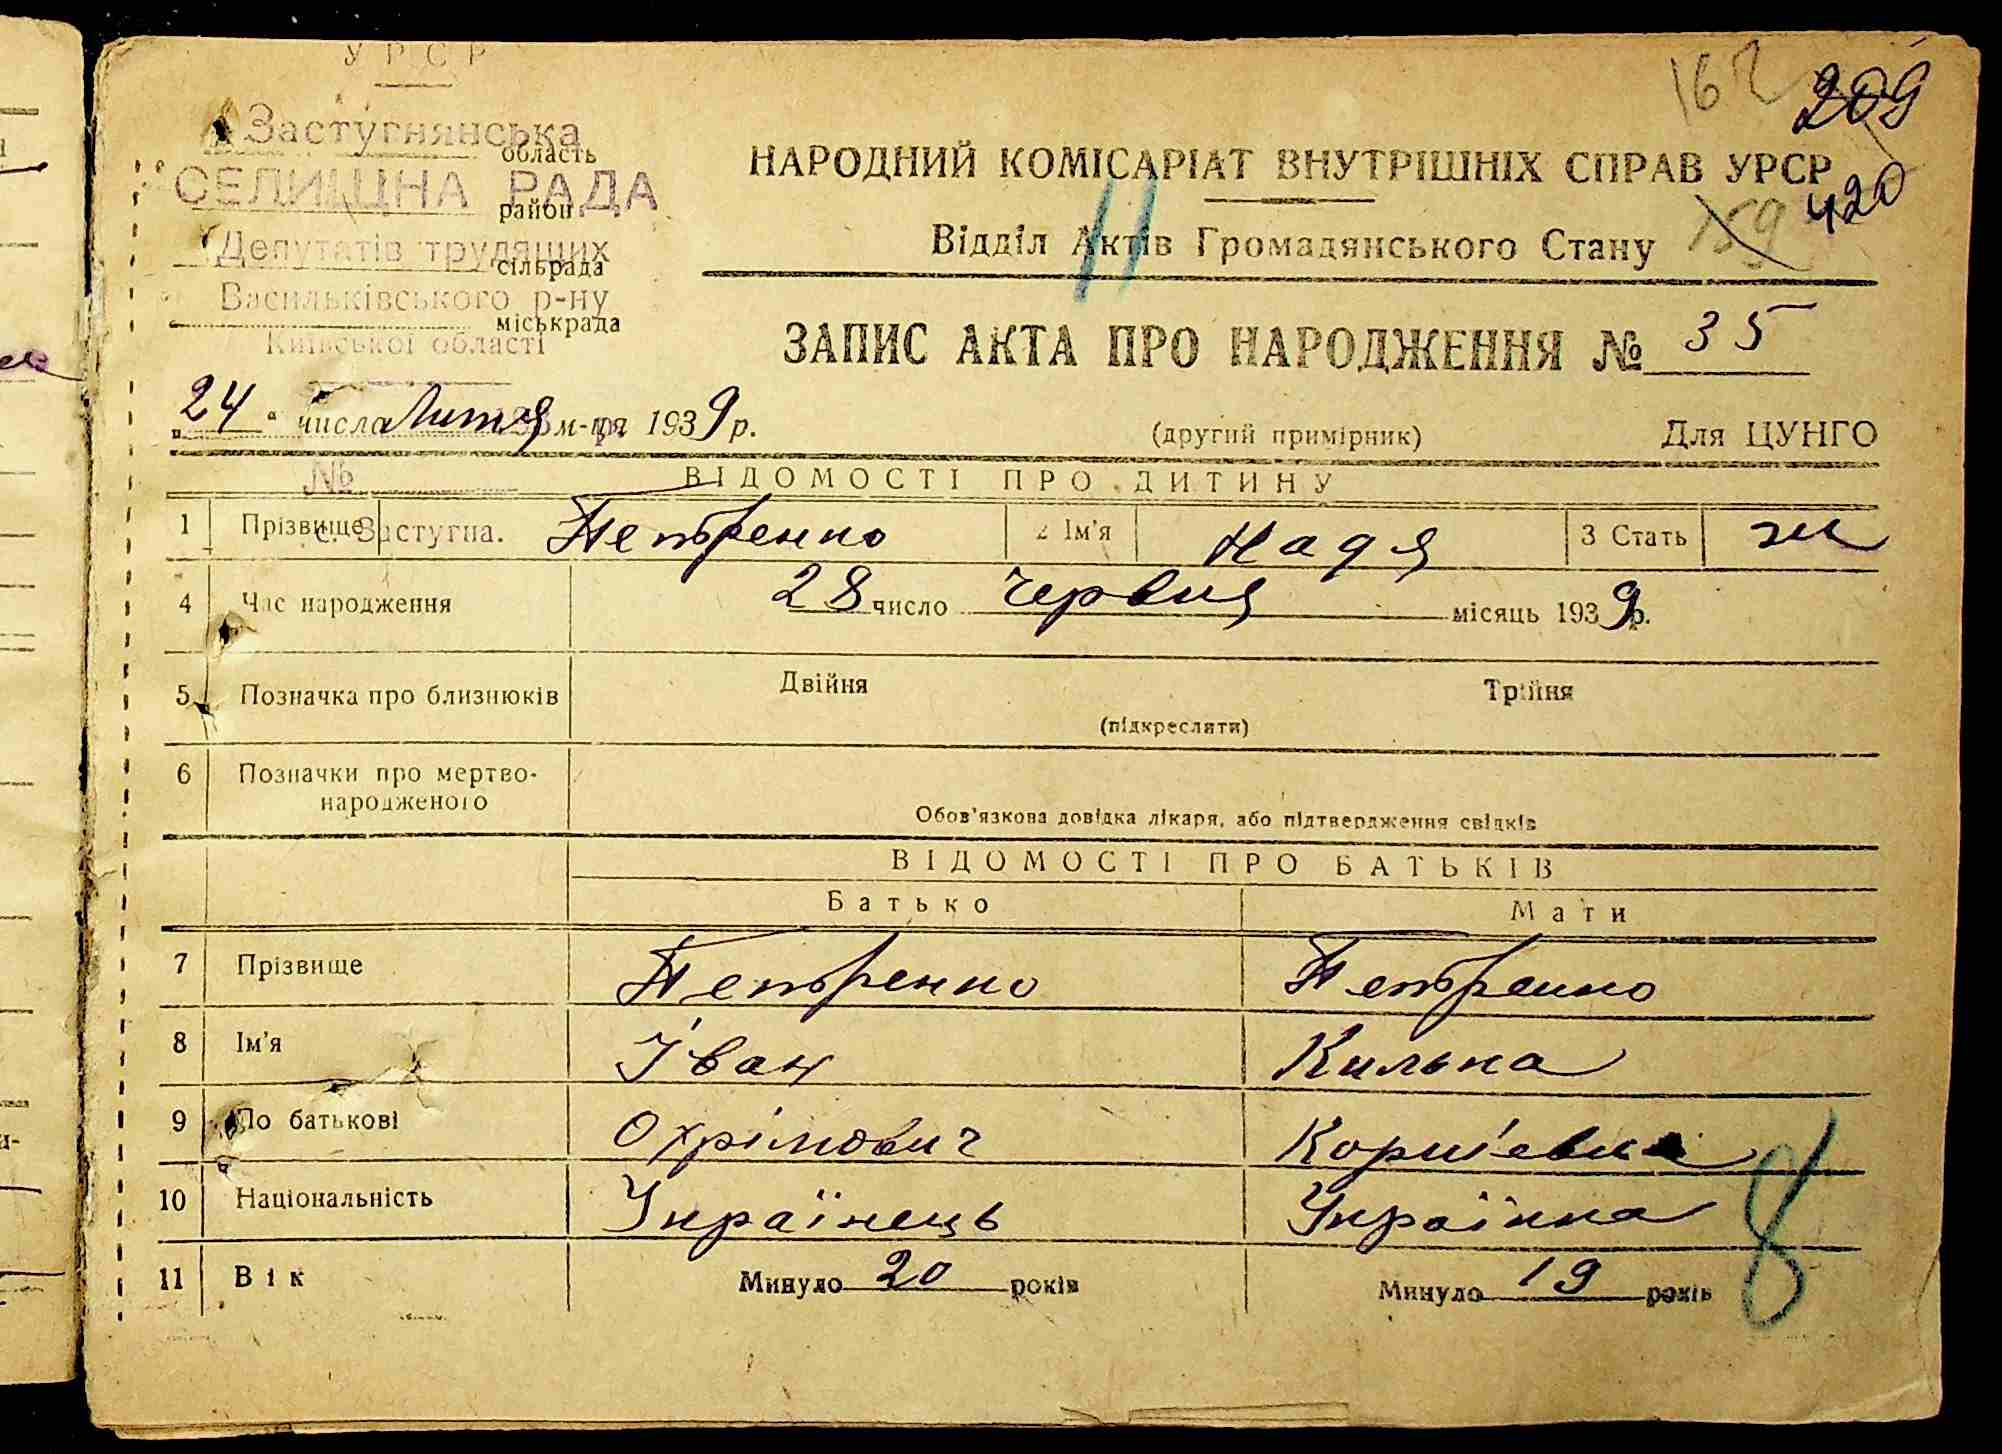 УРСР
Застугнянська
область
СЕЛИЩНА РАДА
район
Депутатів трудящих
сільрада
Васильківського р-ну
міськрада
Київської області
162
209
НАРОДНИЙ КОМІСАРІАТ ВНУТРІШНІХ СПРАВ УРСР
420
159
11
Відділ Актів Громадянського Стану
ЗАПИС АКТА ПРО НАРОДЖЕННЯ № 35
„24" числа Липня м-ця 1939 р.
(другий примірник) Для ЦУНГО
№
ВІДОМОСТІ ПРО ДИТИНУ
с. Застугна.
1 Прізвище Петренко 2 Ім'я Надя 3 Стать ж
4 Час народження 28 число червня місяць 1939 р.
5 Позначка про близнюків Двійня Трійня
(підкреслити)
6 Позначки про мертво-
народженого
Обов'язкова довідка лікаря, або підтвердження свідків
ВІДОМОСТІ ПРО БАТЬКІВ
Батько Мати
7 Прізвище Петренко Петренко
8 Ім'я Іван Килына
9 По батькові Охрімович Корніевна
10 Національність Українець Українка
11 Вік Минуло 20 років Минуло 19 років
8